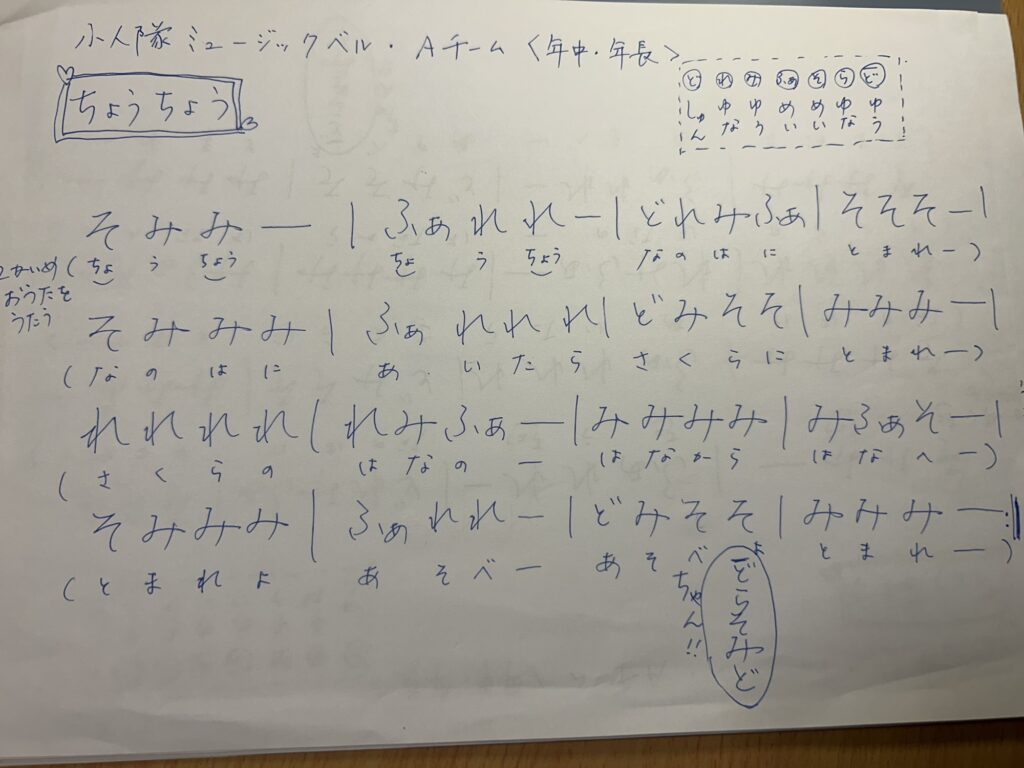 小人隊 ミュージックベル・Aチーム〈年中・年長〉
ちょうちょう
ど れ み ふぁ そ ら ど
しゅん ゆな ゆう めい めい ゆな ゆう
そ み み ー | ふぁ れ れ ー | ど れ み ふぁ | そ そ そ ー |
2かいめ おうたを うたう
(ちょ う ちょう ちょ う ちょう なの は に と ま れ ー)
そ み み み | ふぁ れ れ れ | ど み そ そ | み み み ー |
(な の は に あ い た ら さ く ら に と ま れ ー)
れ れ れ れ | れ み ふぁ ー | み み み み | み ふぁ そ ー |
(さ く ら の は な の ー は な か ら は な へ ー)
そ み み み | ふぁ れ れ ー | ど み そ そ | み み み ー :|
(と ま れ よ あ そ べ ー あ そ べ よ と ま れ ー)
ちゃん!!
どらそみど